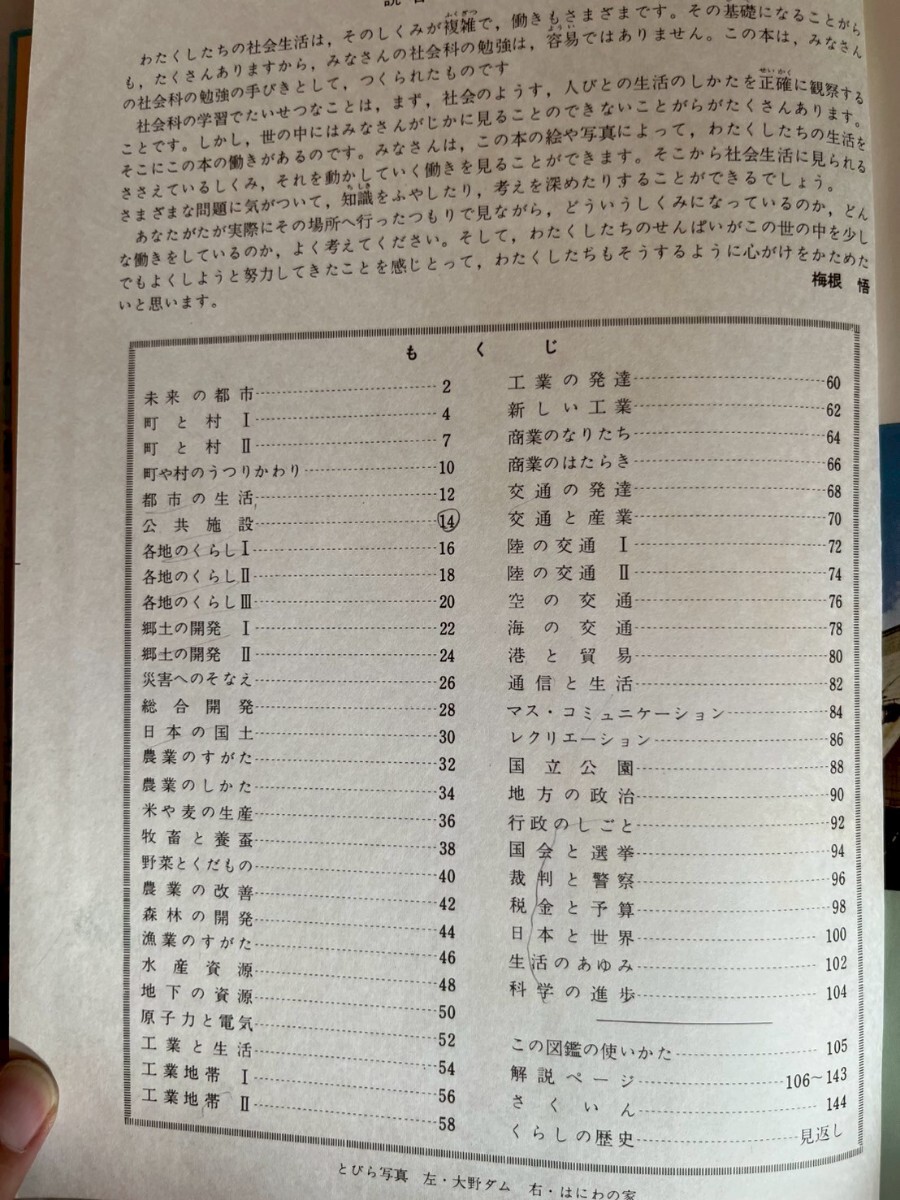 わたくしたちの社会生活は，そのしくみが複雑で，働きもさまざまです。その基礎になることがら
も，たくさんありますから，みなさんの社会科の勉強は，容易ではありません。この本は，みなさん
の社会科の勉強の手びきとして，つくられたものです
社会科の学習でたいせつなことは，まず，社会のようす，人びとの生活のしかたを正確に観察する
ことです。しかし，世の中にはみなさんがじかに見ることのできないことがらがたくさんあります。
そこにこの本の働きがあるのです。みなさんは，この本の絵や写真によって，わたくしたちの生活を
ささえているしくみ，それを動かしていく働きを見ることができます。そこから社会生活に見られる
さまざまな問題に気がついて，知識をふやしたり，考えを深めたりすることができるでしょう。
あなたがたが実際にその場所へ行ったつもりで見ながら，どういうしくみになっているのか，どん
な働きをしているのか，よく考えてください。そして，わたくしたちのせんぱいがこの世の中を少し
でもよくしようと努力してきたことを感じとって，わたくしたちもそうするように心がけをかためた
いと思います。
梅根 悟
もくじ
未来の都市 2
町と村 Ⅰ 4
町と村 Ⅱ 7
町や村のうつりかわり 10
都市の生活 12
公共施設 14
各地のくらしⅠ 16
各地のくらしⅡ 18
各地のくらしⅢ 20
郷土の開発 Ⅰ 22
郷土の開発 Ⅱ 24
災害へのそなえ 26
総合開発 28
日本の国土 30
農業のすがた 32
農業のしかた 34
米や麦の生産 36
牧畜と養蚕 38
野菜とくだもの 40
農業の改善 42
森林の開発 44
漁業のすがた 46
水産資源 48
地下の資源 50
原子力と電気 52
工業と生活 54
工業地帯 Ⅰ 56
工業地帯 Ⅱ 58
工業の発達 60
新しい工業 62
商業のなりたち 64
商業のはたらき 66
交通の発達 68
交通と産業 70
陸の交通 Ⅰ 72
陸の交通 Ⅱ 74
空の交通 76
海の交通 78
港と貿易 80
通信と生活 82
マス・コミュニケーション 84
レクリエーション 86
国立公園 88
地方の政治 90
行政のしごと 92
国会と選挙 94
裁判と警察 96
税金と予算 98
日本と世界 100
生活のあゆみ 102
科学の進歩 104
この図鑑の使いかた 105
解説ページ 106～143
さくいん 144
くらしの歴史 見返し
とびら写真 左・大野ダム 右・はにわの家